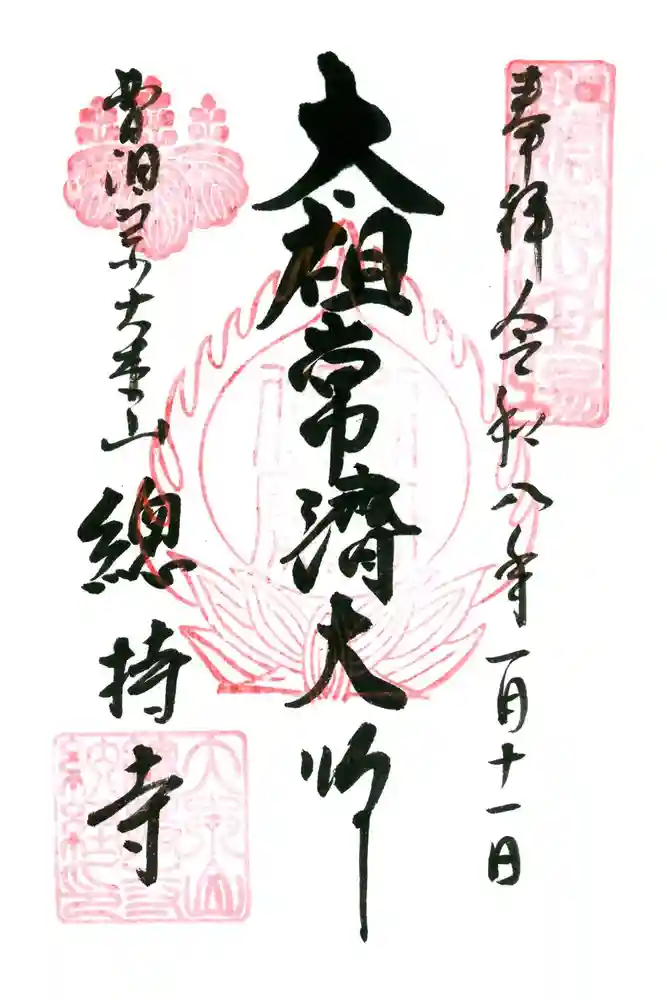 奉拝 令和八年一月十一日
太祖常濟大師
曹洞宗大本山 總持寺